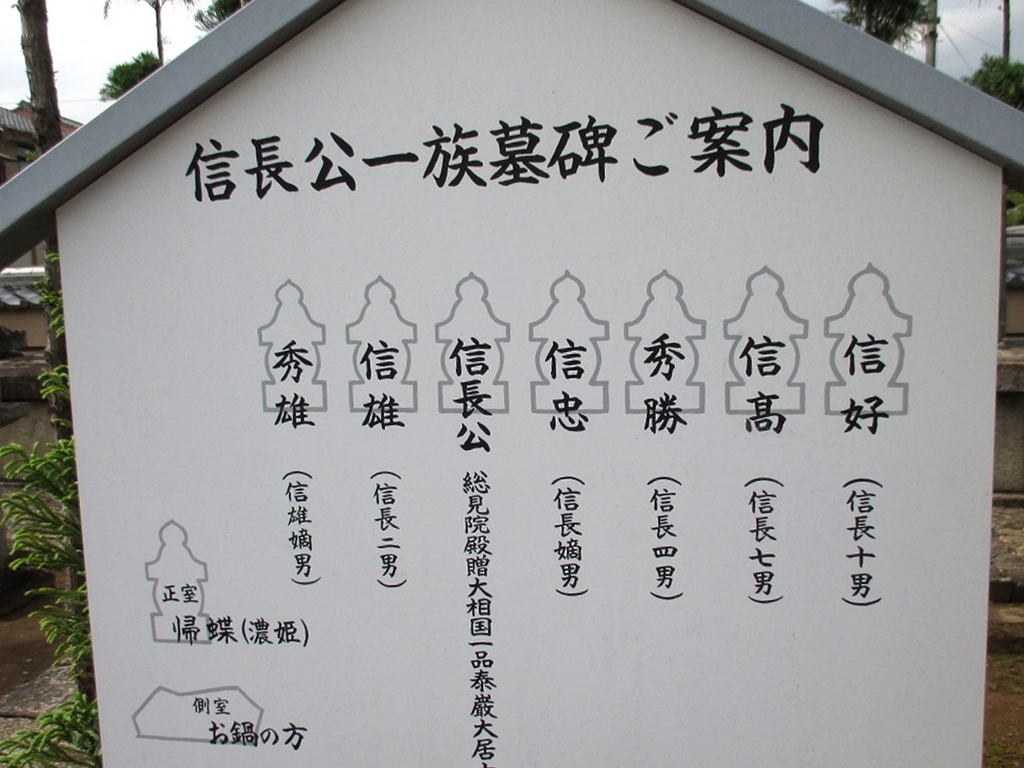 信長公一族墓碑ご案内
信好
(信長十男)
信髙
(信長七男)
秀勝
(信長四男)
信忠
(信長嫡男)
信長公
総見院殿贈大相国一品泰巌大居
信雄
(信長二男)
秀雄
(信雄嫡男)
正室
帰蝶(濃姫)
側室
お鍋の方